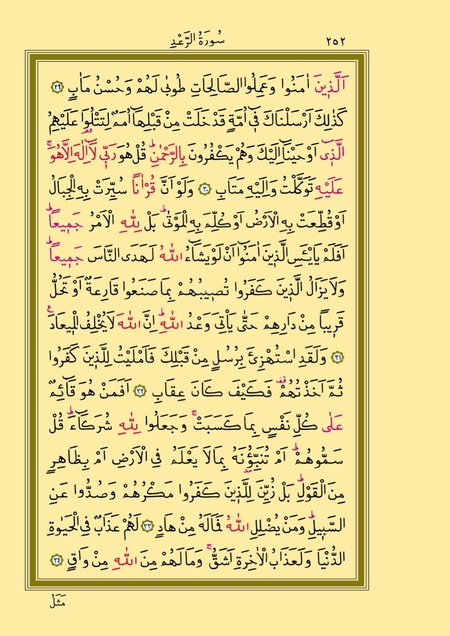 سُورَةُ الرَّعْدِ ٢٥٢
اَلَّذ۪ينَ اٰمَنُوا وَعَمِلُوا الصَّالِحَاتِ طُوبٰى لَهُمْ وَحُسْنُ مَاٰبٍ ﴿٢٩﴾
كَذٰلِكَ اَرْسَلْنَاكَ ف۪ٓي اُمَّةٍ قَدْ خَلَتْ مِنْ قَبْلِهَٓا اُمَمٌ لِتَتْلُوَا۬ عَلَيْهِمُ
الَّذ۪ٓي اَوْحَيْنَٓا اِلَيْكَ وَهُمْ يَكْفُرُونَ بِالرَّحْمٰنِۜ قُلْ هُوَ رَبّ۪ي لَٓا اِلٰهَ اِلَّا هُوَۚ
عَلَيْهِ تَوَكَّلْتُ وَاِلَيْهِ مَتَابِ ﴿٣٠﴾ وَلَوْ اَنَّ قُرْاٰناً سُيِّرَتْ بِهِ الْجِبَالُ
اَوْ قُطِّعَتْ بِهِ الْاَرْضُ اَوْ كُلِّمَ بِهِ الْمَوْتٰىۜ بَلْ لِلّٰهِ الْاَمْرُ جَم۪يعاًۜ
اَفَلَمْ يَا۬يْـَٔسِ الَّذ۪ينَ اٰمَنُٓوا اَنْ لَوْ يَشَٓاءُ اللّٰهُ لَهَدَى النَّاسَ جَم۪يعاًۜ
وَلَا يَزَالُ الَّذ۪ينَ كَفَرُوا تُص۪يبُهُمْ بِمَا صَنَعُوا قَارِعَةٌ اَوْ تَحُلُّ
قَر۪يباً مِنْ دَارِهِمْ حَتّٰى يَأْتِيَ وَعْدُ اللّٰهِۜ اِنَّ اللّٰهَ لَا يُخْلِفُ الْم۪يعَادَ۟
﴿٣١﴾ وَلَقَدِ اسْتُهْزِئَ بِرُسُلٍ مِنْ قَبْلِكَ فَاَمْلَيْتُ لِلَّذ۪ينَ كَفَرُوا
ثُمَّ اَخَذْتُهُمْ۠ فَكَيْفَ كَانَ عِقَابِ ﴿٣٢﴾ اَفَمَنْ هُوَ قَٓائِمٌ
عَلٰى كُلِّ نَفْسٍ بِمَا كَسَبَتْۚ وَجَعَلُوا لِلّٰهِ شُرَكَٓاءَۜ قُلْ
سَمُّوهُمْۜ اَمْ تُنَبِّؤُ۫نَهُ بِمَا لَا يَعْلَمُ فِي الْاَرْضِ اَمْ بِظَاهِرٍ
مِنَ الْقَوْلِۜ بَلْ زُيِّنَ لِلَّذ۪ينَ كَفَرُوا مَكْرُهُمْ وَصُدُّوا عَنِ
السَّب۪يلِۜ وَمَنْ يُضْلِلِ اللّٰهُ فَمَا لَهُ مِنْ هَادٍ ﴿٣٣﴾ لَهُمْ عَذَابٌ فِي الْحَيٰوةِ
الدُّنْيَا وَلَعَذَابُ الْاٰخِرَةِ اَشَقُّۚ وَمَا لَهُمْ مِنَ اللّٰهِ مِنْ وَاقٍ ﴿٣٤﴾
مَثَلُ